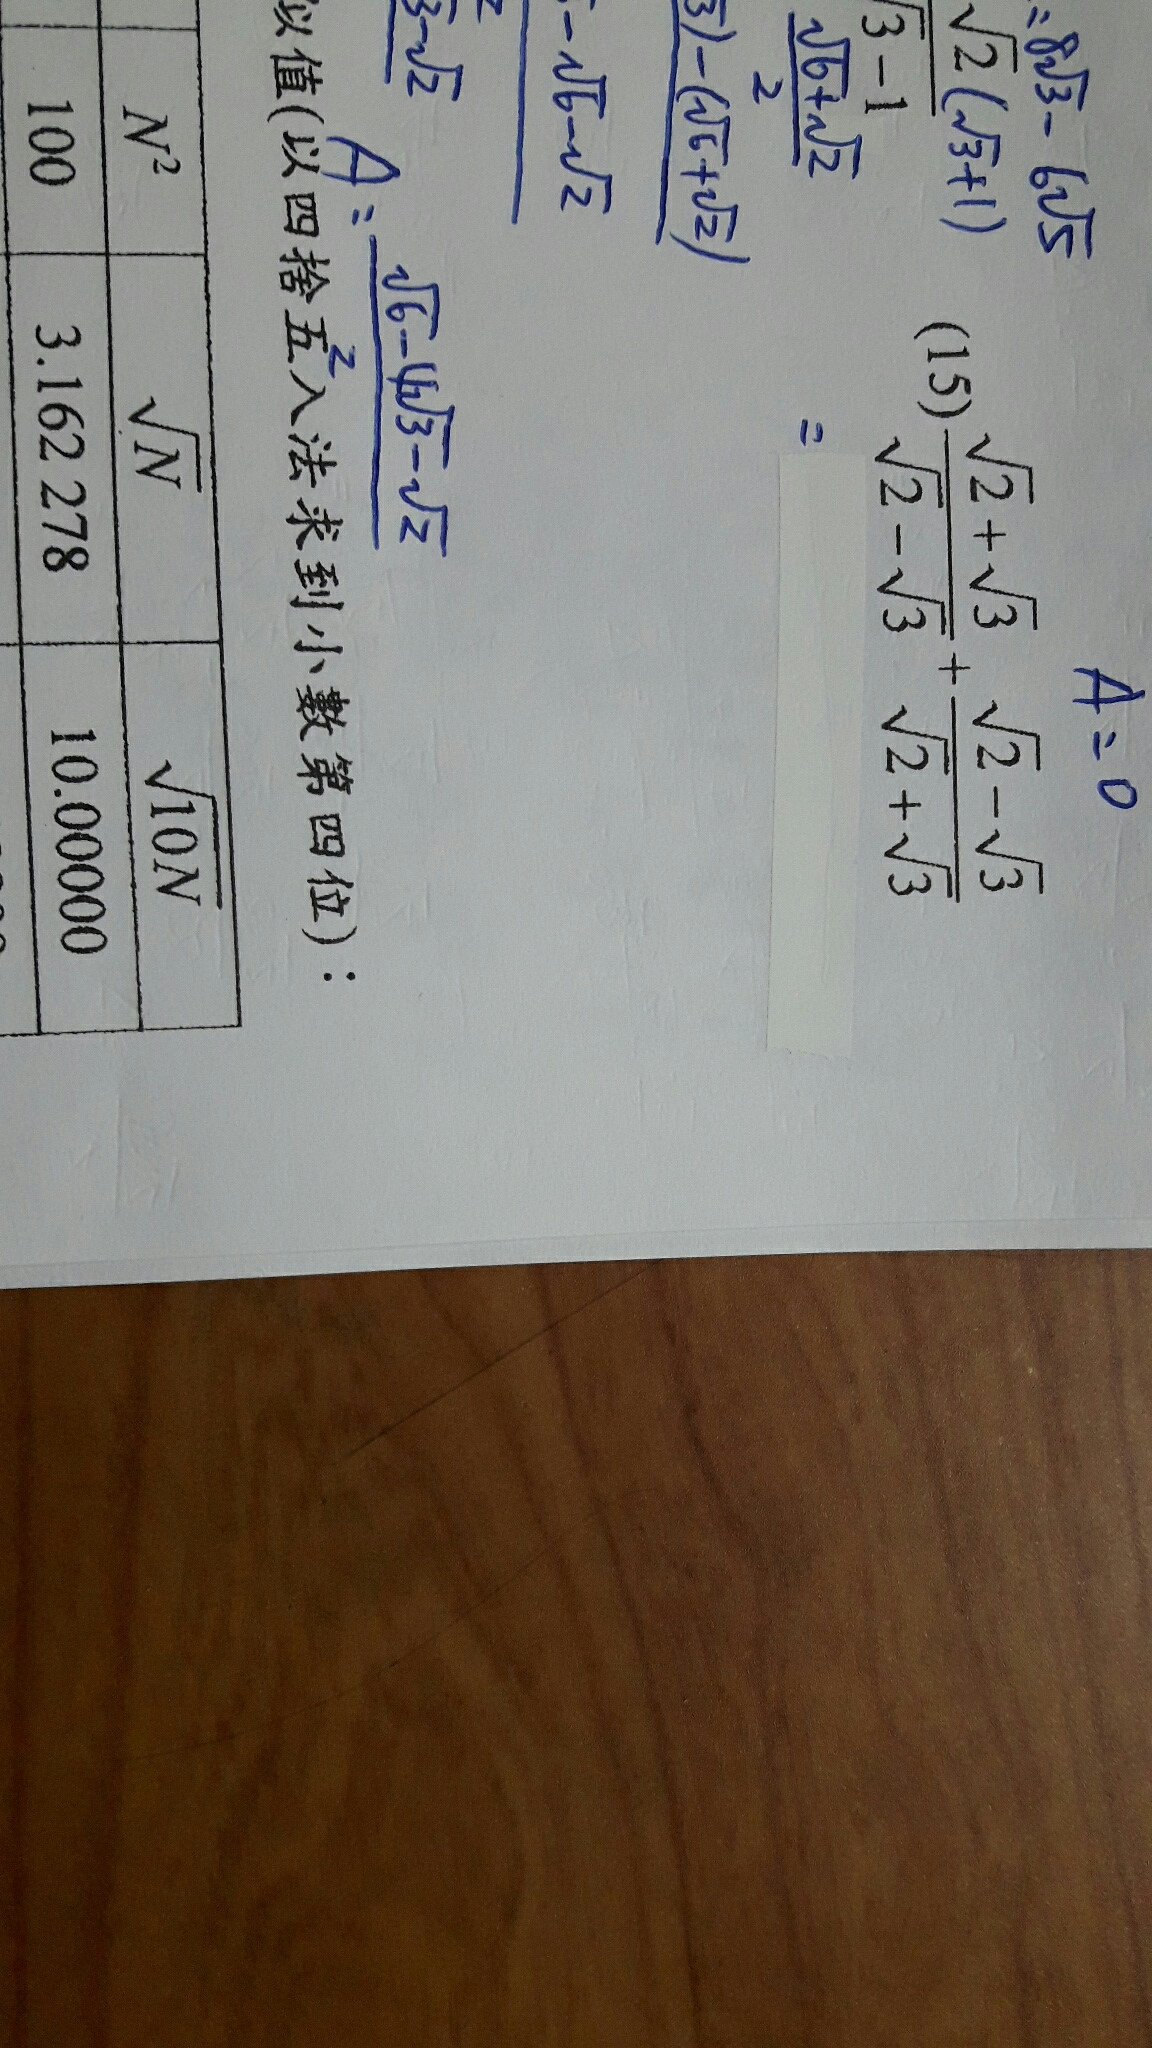 = 8√3 - 6√5
A = 0
√2(√3+1)
√3 - 1
√6+√2
2
3) - (√6+√2)
- √6 - √2
3 - √2
2
A = (√6 - 4√3 - √2)/2
(15) (√2+√3)/(√2-√3) + (√2-√3)/(√2+√3)
=
似值(以四捨五入法求到小數第四位):
N² √N √10N
100 3.162 278 10.00000